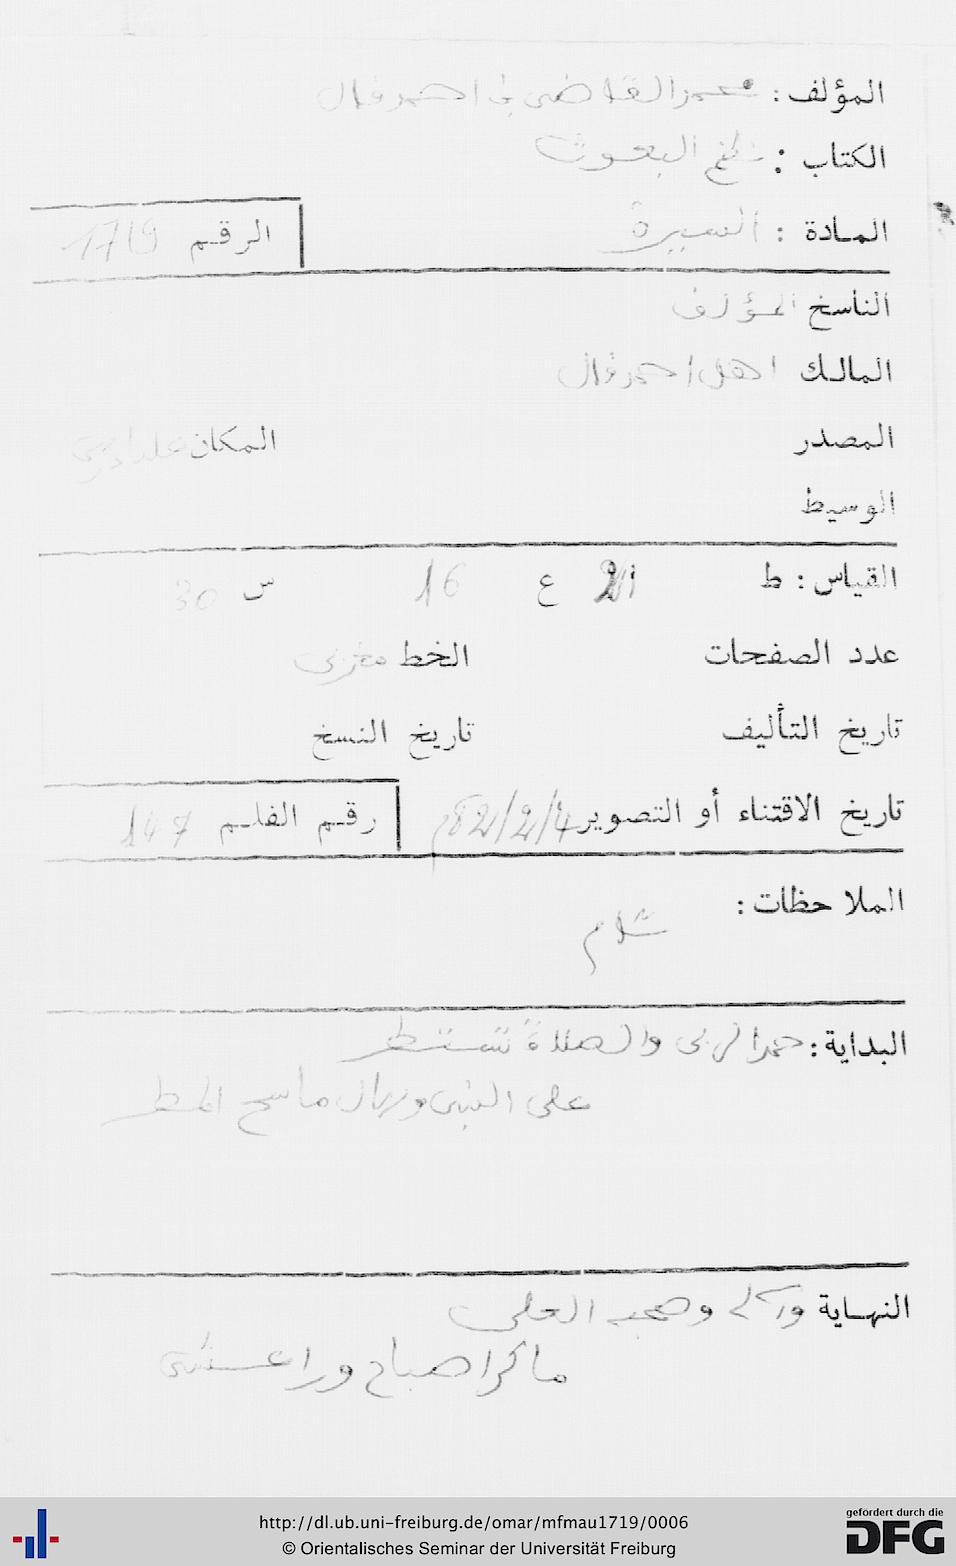 المؤلف : محمد القاضي بن احمد فال
الكتاب : نظم البعوث
المادة : السيرة
الرقم 1719
الناسخ المؤلف
المالك اهل احمد فال
المصدر
المكان
الوسيط
القياس : ط 21 ع 16 س 30
عدد الصفحات
الخط مغربي
تاريخ التأليف
تاريخ النسخ
تاريخ الاقتناء أو التصوير 4/2/82م
رقم الفلم 147
الملاحظات :
تام
البداية : حمدا لربي والصلاة تستطر
على النبي وءال ما سح المطر
النهاية وءاله وصحبه
ما كرا صباح و عشي
http://dl.ub.uni-freiburg.de/omar/mfmau1719/0006
© Orientalisches Seminar der Universität Freiburg
gefördert durch die
DFG